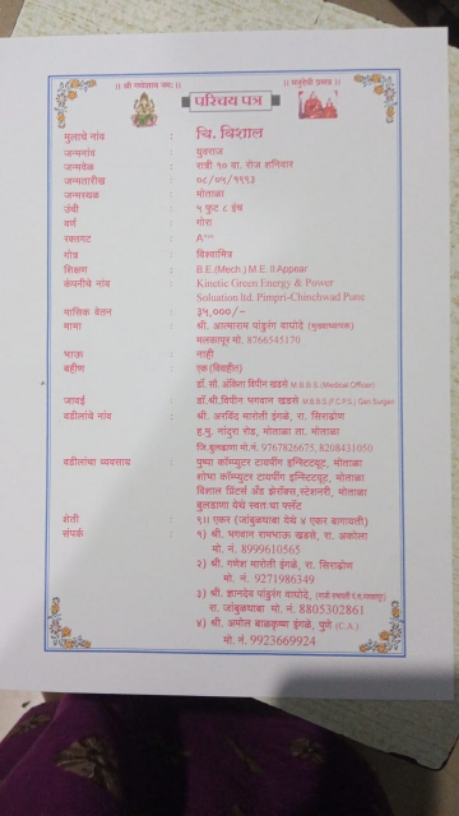 ।। श्री गणेशाय नमः ।।
परिचय पत्र
प्रसन्न ।।
मुलाचे नांव : चि. विशाल
जन्मनांव : युवराज
जन्मवेळ : रात्री १० वा. रोज शनिवार
जन्मतारीख : ०८/०५/१९९३
जन्मस्थळ : मोताळा
उंची : ५ फुट ८ इंच
वर्ण : गोरा
रक्तगट : A+ve
गोत्र : विश्वामित्र
शिक्षण : B.E.(Mech.) M.E. II Appear
कंपनीचे नांव : Kinetic Green Energy & Power
Soluation ltd. Pimpri-Chinchwad Pune
मासिक वेतन : ३५,०००/-
मामा : श्री. आत्माराम पांडुरंग वाघोदे (मुख्याध्यापक)
मलकापूर मो. 8766545170
भाऊ : नाही
बहीण : एक (विवाहीत)
डॉ. सौ. अंकिता विपीन खडसे M.B.B.S.(Medical Officer)
जावई : डॉ.श्री.विपीन भगवान खडसे M.B.B.S.(F.C.P.S.) Gen Surgen
वडीलांचे नांव : श्री. अरविंद मारोती इंगळे, रा. सिराढोण
ह.मु. नांदुरा रोड, मोताळा ता. मोताळा
जि.बुलडाणा मो.नं. 9767826675, 8208431050
वडीलांचा व्यवसाय : पुष्पा कॉम्प्युटर टायपींग इन्स्टिट्यूट, मोताळा
शोभा कॉम्प्युटर टायपींग इन्स्टिट्यूट, मोताळा
विशाल प्रिंटर्स अँड झेरॉक्स,स्टेशनरी, मोताळा
बुलडाणा येथे स्वतःचा फ्लॅट
शेती : ९॥ एकर (जांबुळधाबा येथे ४ एकर बागायती)
संपर्क : १) श्री. भगवान रामभाऊ खडसे, रा. अकोला
मो. नं. 8999610565
२) श्री. गणेश मारोती इंगळे, रा. सिराढोण
मो. नं. 9271986349
३) श्री. ज्ञानदेव पांडुरंग वाघोदे,
रा. जांबुळधाबा मो. नं. 8805302861
४) श्री. अमोल बाळकृष्ण इंगळे, पुणे (C.A.)
मो. नं. 9923669924